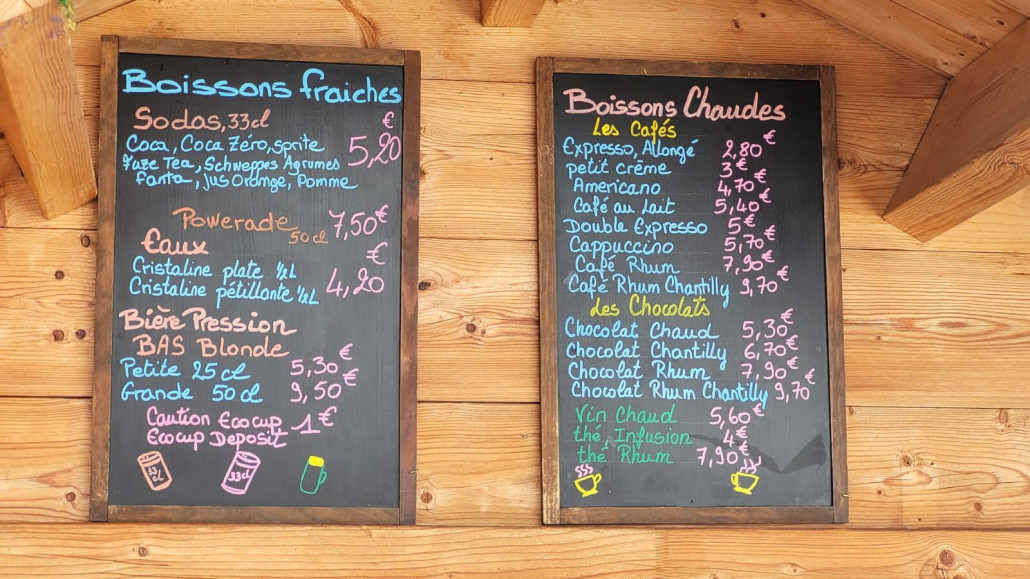 Boissons fraîches
Sodas, 33cl €
Coca, Coca Zéro, sprite 5,20
Fuze Tea, Schweppes Agrumes
Fanta, jus Orange, Pomme
Powerade 50cl 7,50€
Eaux €
Cristaline plate 1/2L 4,20
Cristaline pétillante 1/2L
Bière Pression
BAS Blonde
Petite 25 cl 5,30€
Grande 50 cl 9,50€
Caution Ecocup 1€
Ecocup Deposit
33 cl
33cl
Boissons Chaudes
Les Cafés
Expresso, Allongé 2,80€
petit crème 3€
Americano 4,70€
Café au Lait 5,40€
Double Expresso 5€
Cappuccino 5,70€
Café Rhum 7,90€
Café Rhum Chantilly 9,70€
Les Chocolats
Chocolat Chaud 5,30€
Chocolat Chantilly 6,70€
Chocolat Rhum 7,90€
Chocolat Rhum Chantilly 9,70€
Vin Chaud 5,60€
thé, Infusion 4€
thé Rhum 7,90€